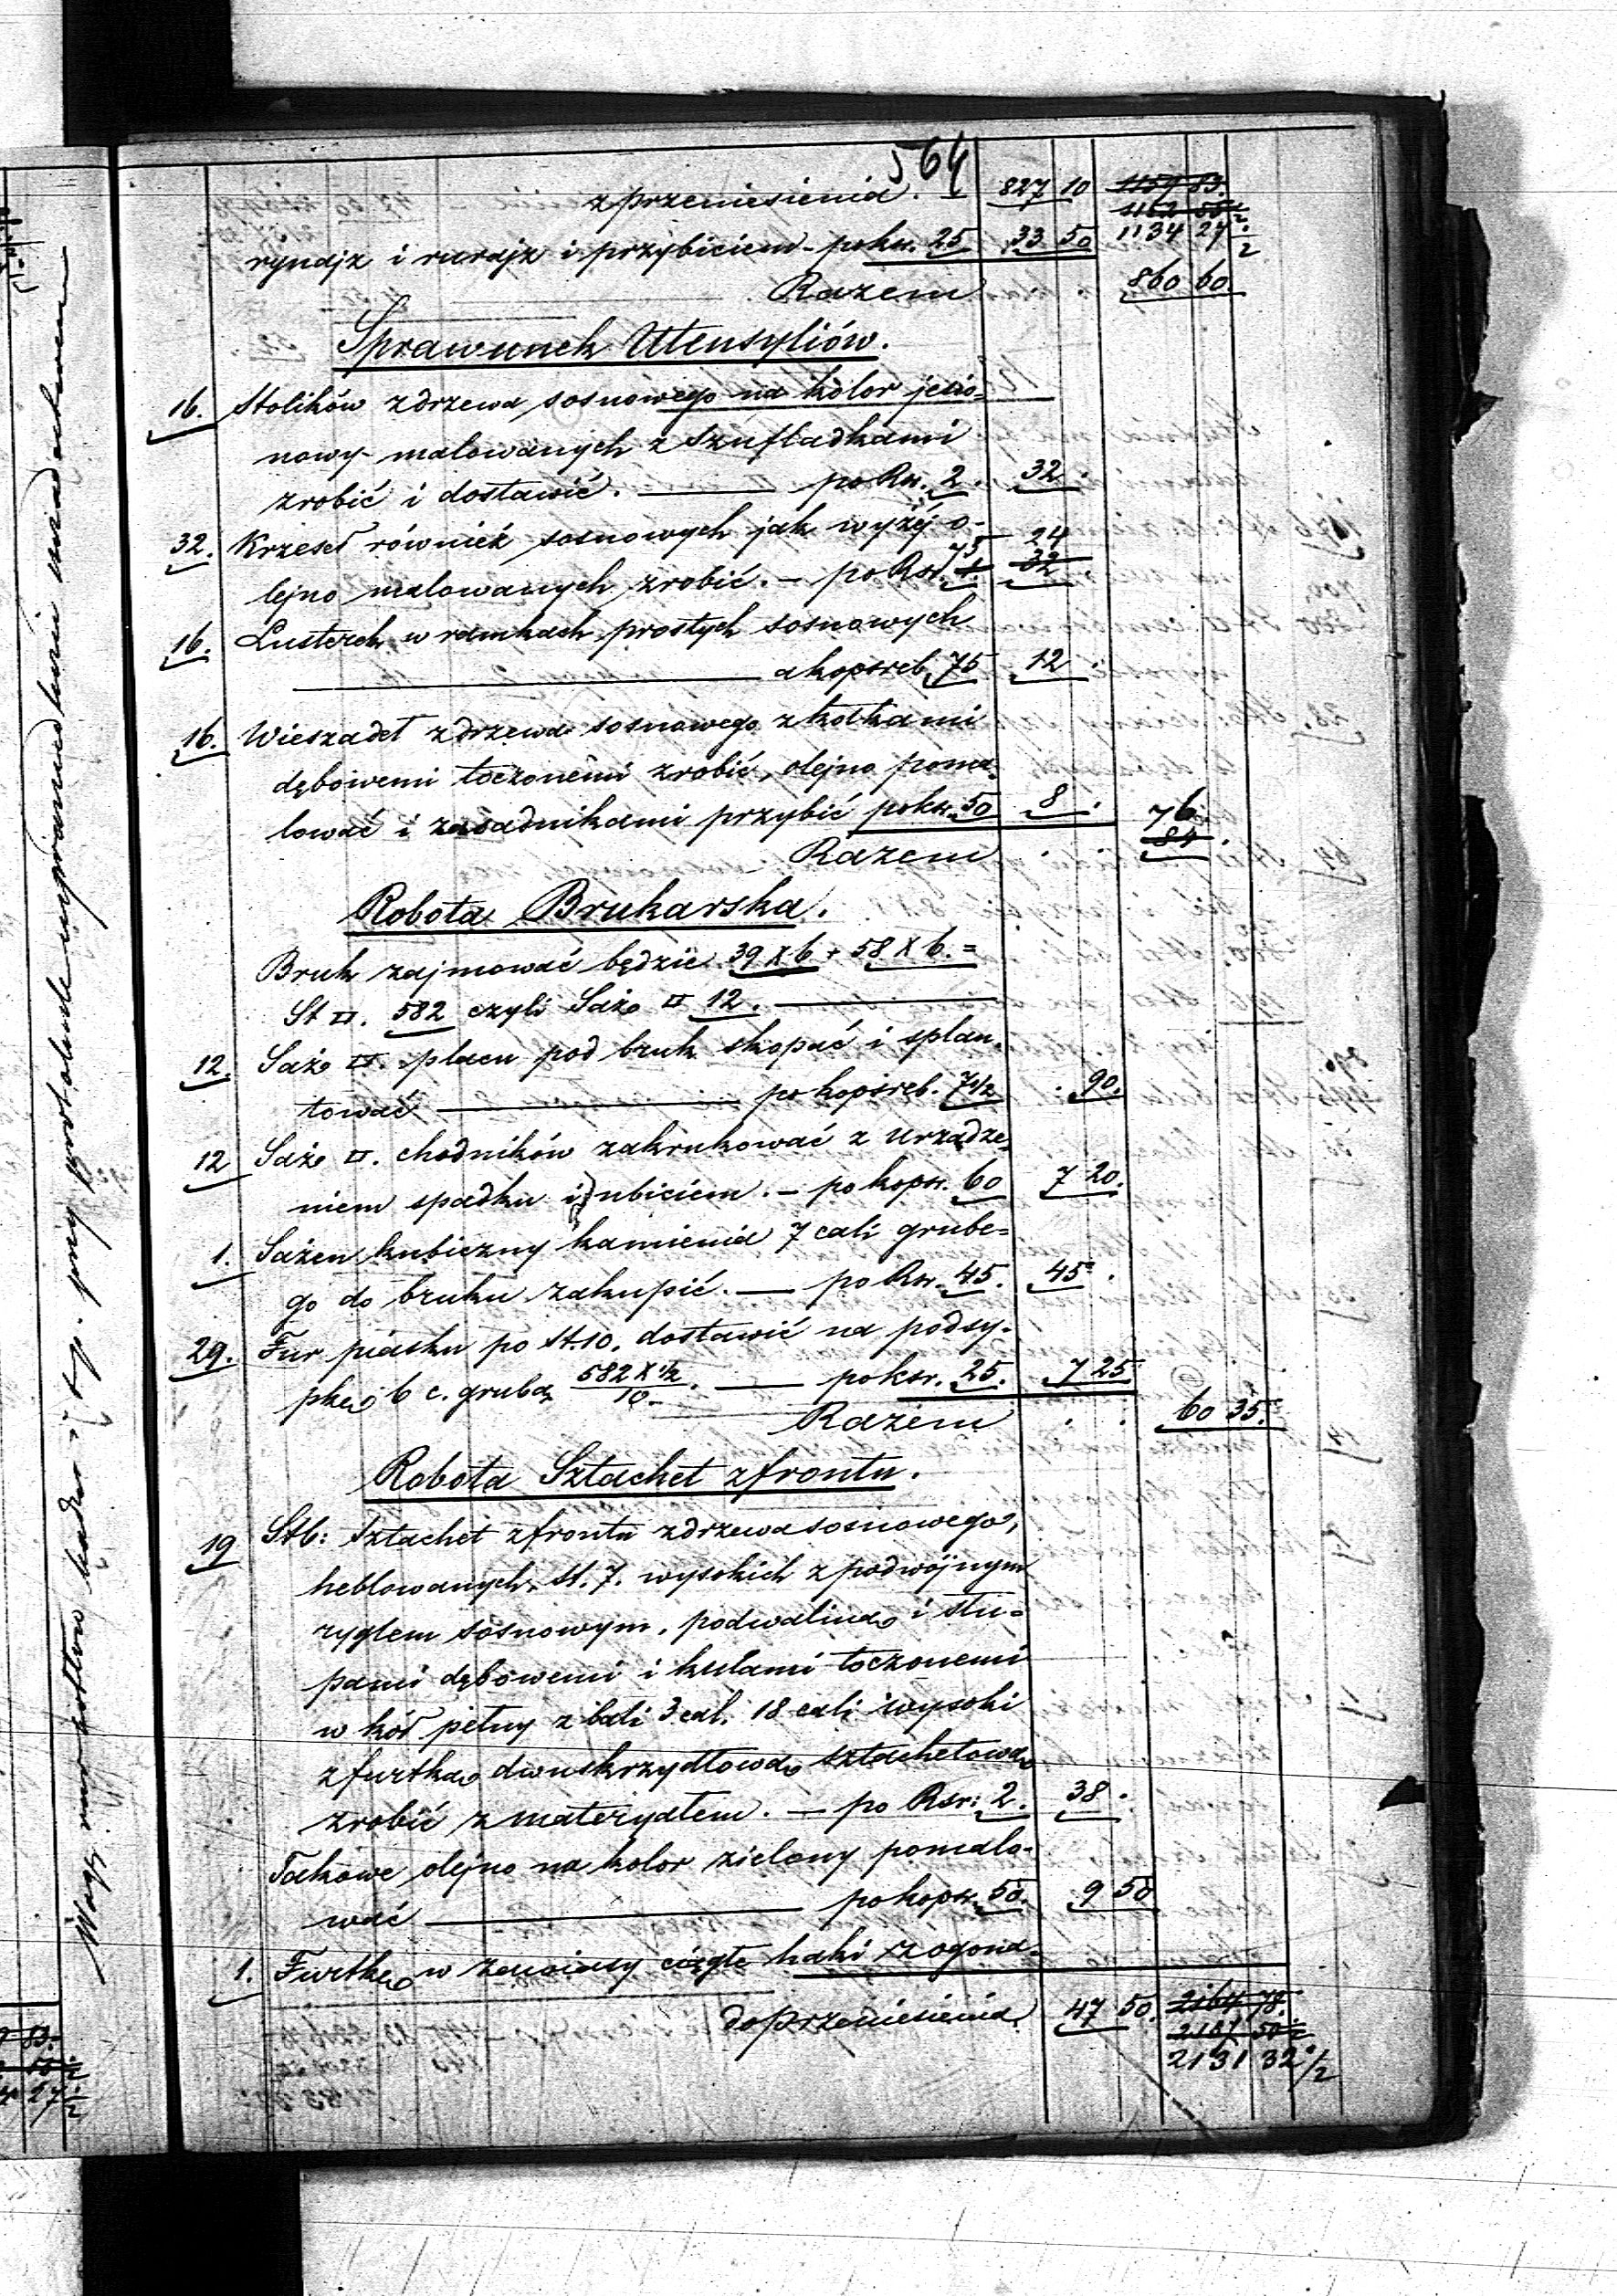 564
z przeniesienia. 827 10 1159 83.
1162 55 1/2
rynajz i rurajz i przybiciem - po ks. 25 33 50 1134 27 1/2
Razem 860 60
Sprawunek Utensyliów.
16. Stolików z drzewa sosnowego na kolor jesio-
nowy malowanych z szufladkami
zrobić i dostawić. — po Rs. 2. 32.
32. Krzeseł również sosnowych jak wyżéj o- 24
lejno malowanych zrobić. — po Rsr. 1. 75 32
16. Lusterek w ramkach prostych sosnowych
— a kopsreb. 75 12.
16. Wieszadeł z drzewa sosnowego z kołkami
dębowemi toczonemi zrobić, olejno poma-
lować i zasadnikami przybić po ks. 50 8. 76
Razem . . 84.
Robota Brukarska.
Bruk zajmować będzie 39 x 6 + 58 x 6. =
St □. 582 czyli Sąż. □ 12. —
12. Sąż. □. placu pod bruk skopać i splan-
tować — po kopsreb. 7 1/2 . 90.
12 Sąż. □. chodników zabrukować z urządze-
niem spadku i ubiciem. — po kopsr. 60 7 20.
1. Sążen kubiczny kamienia 7 cali grube-
go do bruku zakupić. — po Rsr. 45. 45.
29. Fur piasku po St. 10. dostawić na podsy-
pkę 6 c. grubą 582 X 1/2 / 10. — po ksr. 25. 7 25
Razem . . 60 35.
Robota Sztachet z frontu.
19 Stb: Sztachet z frontu z drzewa sosnowego,
heblowanych, st. 7. wysokich z podwójnym
ryglem sosnowym, podwaliną i słu-
pami dębowemi i kulami toczonemi
w kół pełny z bali 3 cal. 18 cali wysoki
z furtką dwuskrzydłową sztachetową
zrobić z materyałem. — po Rsr: 2. 38.
Takowe olejno na kolor zielony pomalo-
wać — po kopsr. 50. 9 50
1. Furtkę w zawiasy ciągłe haki z ogona-
do przeniesienia 47 50. 2164 78.
2167 50 1/2
2131 32 1/2